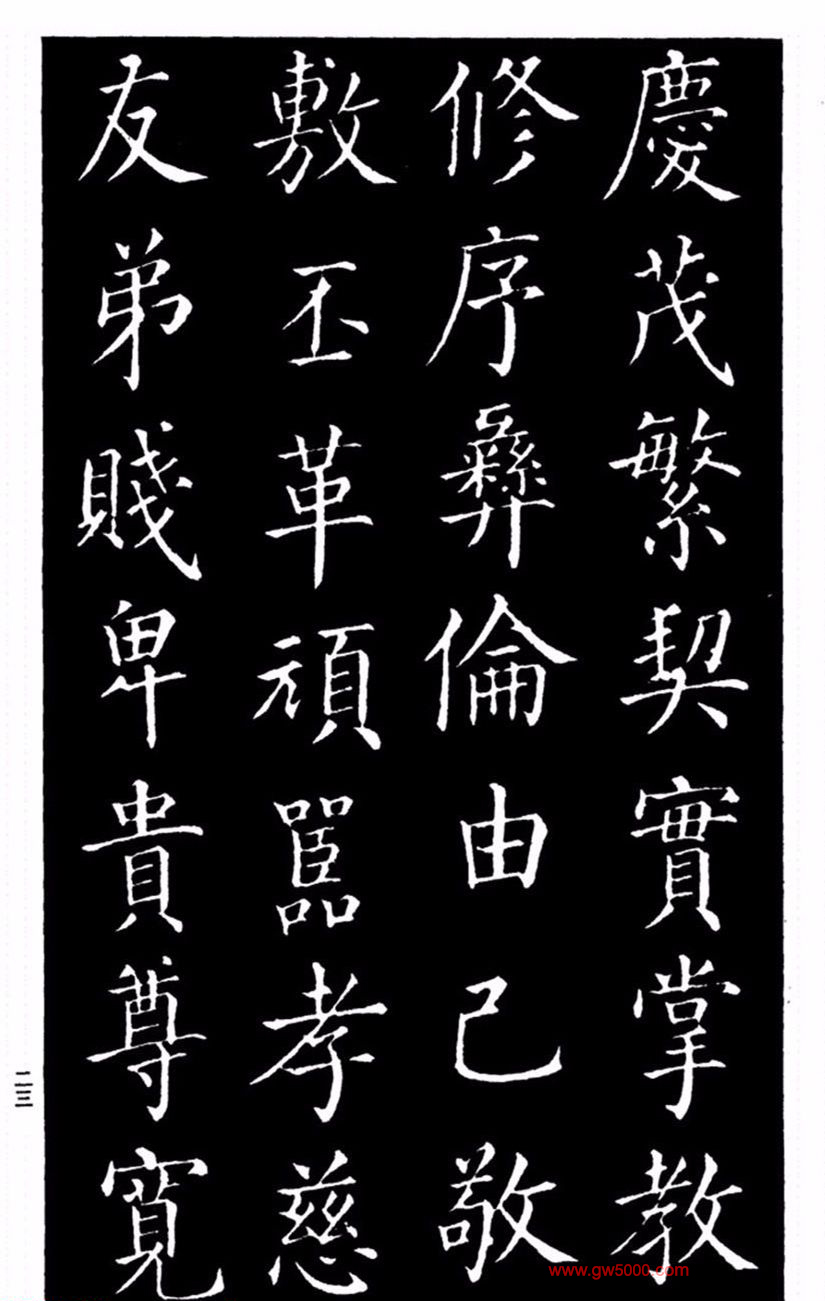 慶茂繁契實掌教
修序彝倫由己敬
敷丕革頑嚚孝慈
友弟賤卑貴尊寬
二三
www.gw5000.com